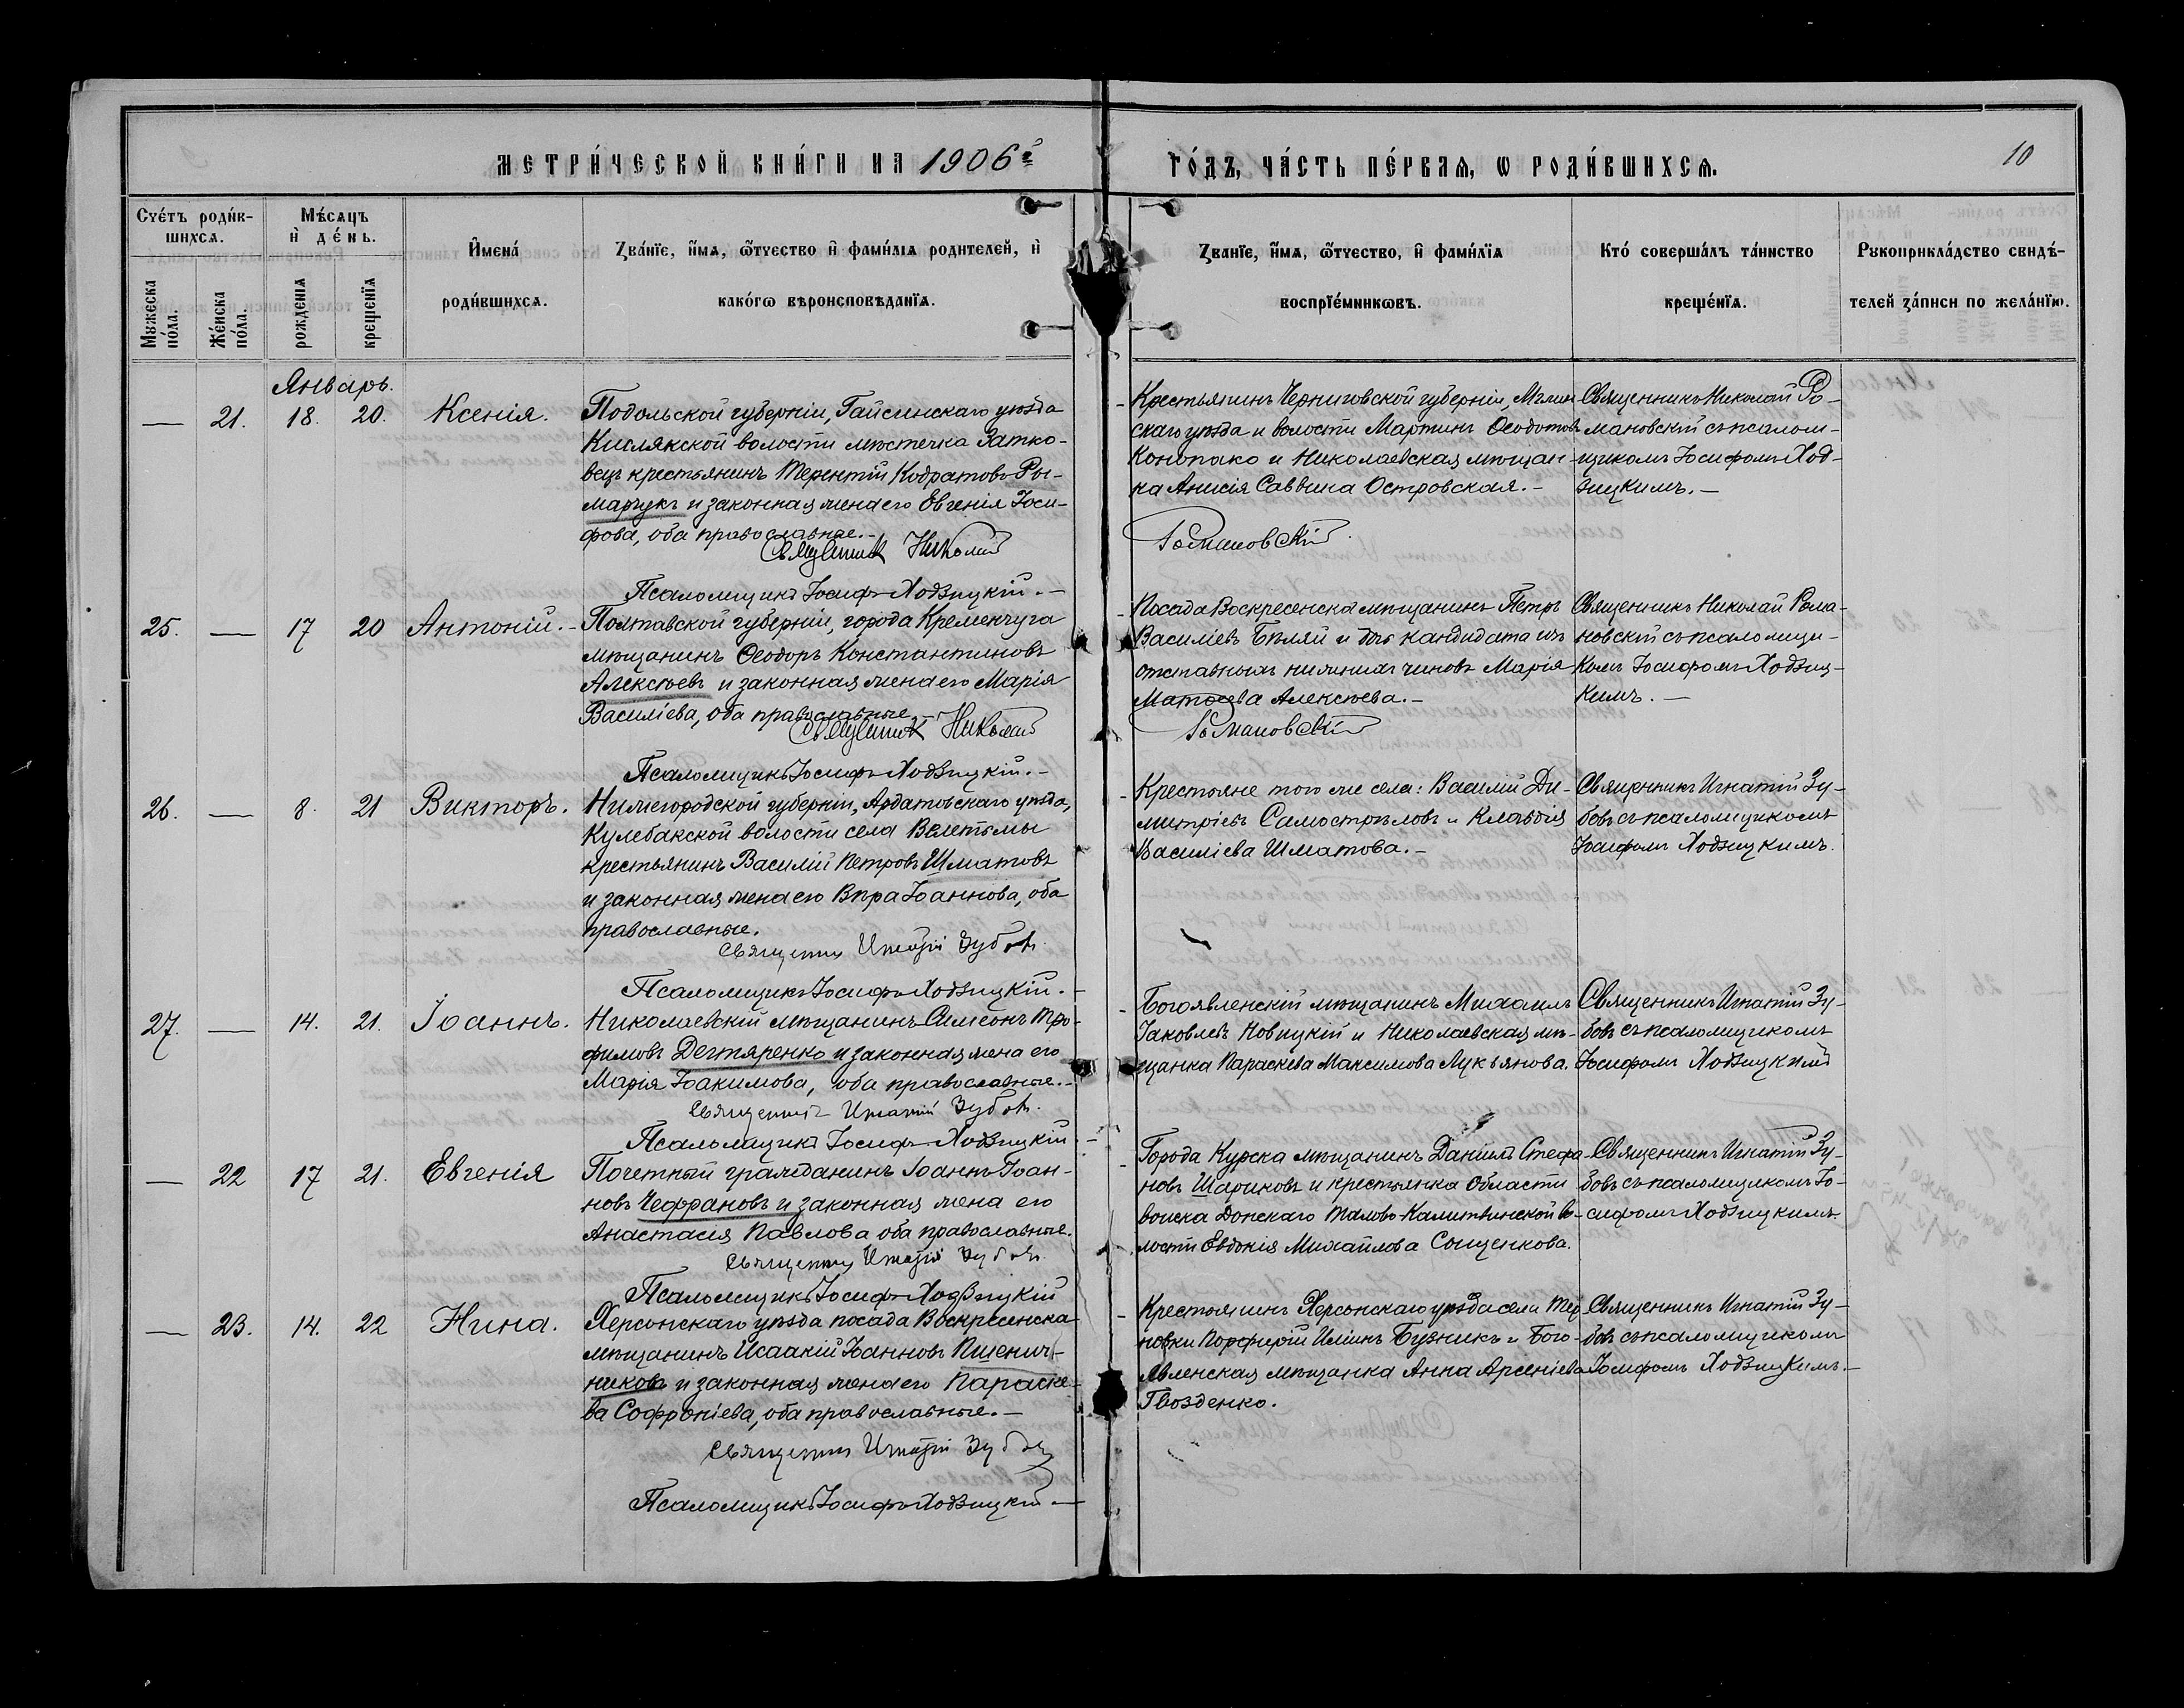 МЕТРИ́ЧЕСКОЙ КНИ́ГИ НА 1906й
ГО́ДЪ, ЧА́СТЬ ПЕ́РВАѦ, Ѡ РОДИ́ВШИХСѦ.
10
Счéтъ роди́вшихсѧ.
Мужеска по́ла.
Же́нска по́ла.
Мѣ́сѧцъ и҆ де́нь.
рожденїѧ
крещенїѧ
И҆мена́ роди́вшихсѧ.
Зва́нїе, и҆́мѧ, ѻ҆́тчество и҆ фами́лїѧ родителей, и҆ како́гѡ вѣроисповѣданїѧ.
Зва́нїе, и҆́мѧ, ѻ҆́тчество, и҆ фами́лїѧ воспрїе́мникѡвъ.
Кто́ соверша́лъ та́инство креще́нїѧ.
Рукоприкла́дство свидѣ́телей за́писи по жела́нїю.
Январь.
— 21. 18. 20. Ксенія.
Подольской губерніи, Гайсинскаго уѣзда
Кислякской волости мѣстечка Зятко-
вецъ крестьянинъ Терентій Кодратовъ Ро-
марчукъ и законная жена его Евгенія Іоси-
фова, оба православные.—
Священникъ Николай
Романовскій
Псаломщикъ Іосифъ Ходзицкій.—
Крестьянинъ Черниговской губерніи, Мглин-
скаго уѣзда и волости Мартинъ Ѳеодотовъ
Конопако и Николаевская мѣщан-
ка Анисія Саввина Островская.—
Священникъ Николай Ро-
мановскій съ псалом-
щикомъ Іосифомъ Ход-
зицкимъ.—
25. — 17 20 Антоній.—
Полтавской губерніи, города Кременчуга
мѣщанинъ Ѳеодоръ Константиновъ
Алексѣевъ и законная жена его Марія
Василіева, оба православные.
Священникъ Николай
Романовскій
Псаломщикъ Іосифъ Ходзицкій.—
Посада Воскресенска мѣщанинъ Петръ
Василіевъ Бѣляй и кандидата изъ
отставныхъ нижнихъ чиновъ Марія
Матѳеева Алексѣева.—
Священникъ Николай Рома-
новскій съ псаломщи-
комъ Іосифомъ Ходзиц-
кимъ.—
26. — 8. 21 Викторъ.
Нижегородской губерніи, Ардатовскаго уѣзда,
Кулебакской волости села Велетьмы
крестьянинъ Василій Петровъ Шматовъ
и законная жена его Вѣра Іоаннова, оба
православные.
Священникъ Игнатій Зубовъ.
Псаломщикъ Іосифъ Ходзицкій.—
Крестьяне того же села: Василій Ди-
митріевъ Самострѣловъ и Клавдія
Василіева Шматова.—
Священникъ Игнатій Зу-
бовъ съ псаломщикомъ
Іосифомъ Ходзицкимъ.
27. — 14. 21. Іоаннъ.
Николаевскій мѣщанинъ Симеонъ Тро-
фимовъ Дегтяренко и законная жена его
Марія Іоакимова, оба православные.—
Священникъ Игнатій Зубовъ.
Псаломщикъ Іосифъ Ходзицкій.—
Богоявленскій мѣщанинъ Михаилъ
Іаковлевъ Новицкій и Николаевская мѣ-
щанка Параскева Максимова Лукьянова.
Священникъ Игнатій Зу-
бовъ съ псаломщикомъ
Іосифомъ Ходзицкимъ
— 22 17 21. Евгенія
Почетный гражданинъ Іоаннъ Іоан-
новъ Чефрановъ и законная жена его
Анастасія Павлова оба православные.
Священникъ Игнатій Зубовъ
Псаломщикъ Іосифъ Ходзицкій
Города Курска мѣщанинъ Даніилъ Стефа-
новъ Шариковъ и крестьянка Области
войска Донскаго Талово-Калитвинской во-
лости Евдокія Михайлова Сощенкова.
Священникъ Игнатій Зу-
бовъ съ псаломщикомъ Іо-
сифомъ Ходзицкимъ.
— 23. 14. 22 Нина.
Херсонскаго уѣзда посада Воскресенска
мѣщанинъ Исаакій Іоанновъ Пшенич-
никовъ и законная жена его Параске-
ва Софроніева, оба православные.—
Священникъ Игнатій Зубовъ
Псаломщикъ Іосифъ Ходзицкій—
Крестьянинъ Херсонскаго уѣзда села Тер-
новки Порфирій Ильинъ Бузникъ и Бого-
явленская мѣщанка Анна Арсеніева
Гвозденко.
Священникъ Игнатій Зу-
бовъ съ псаломщикомъ
Іосифомъ Ходзицкимъ.—